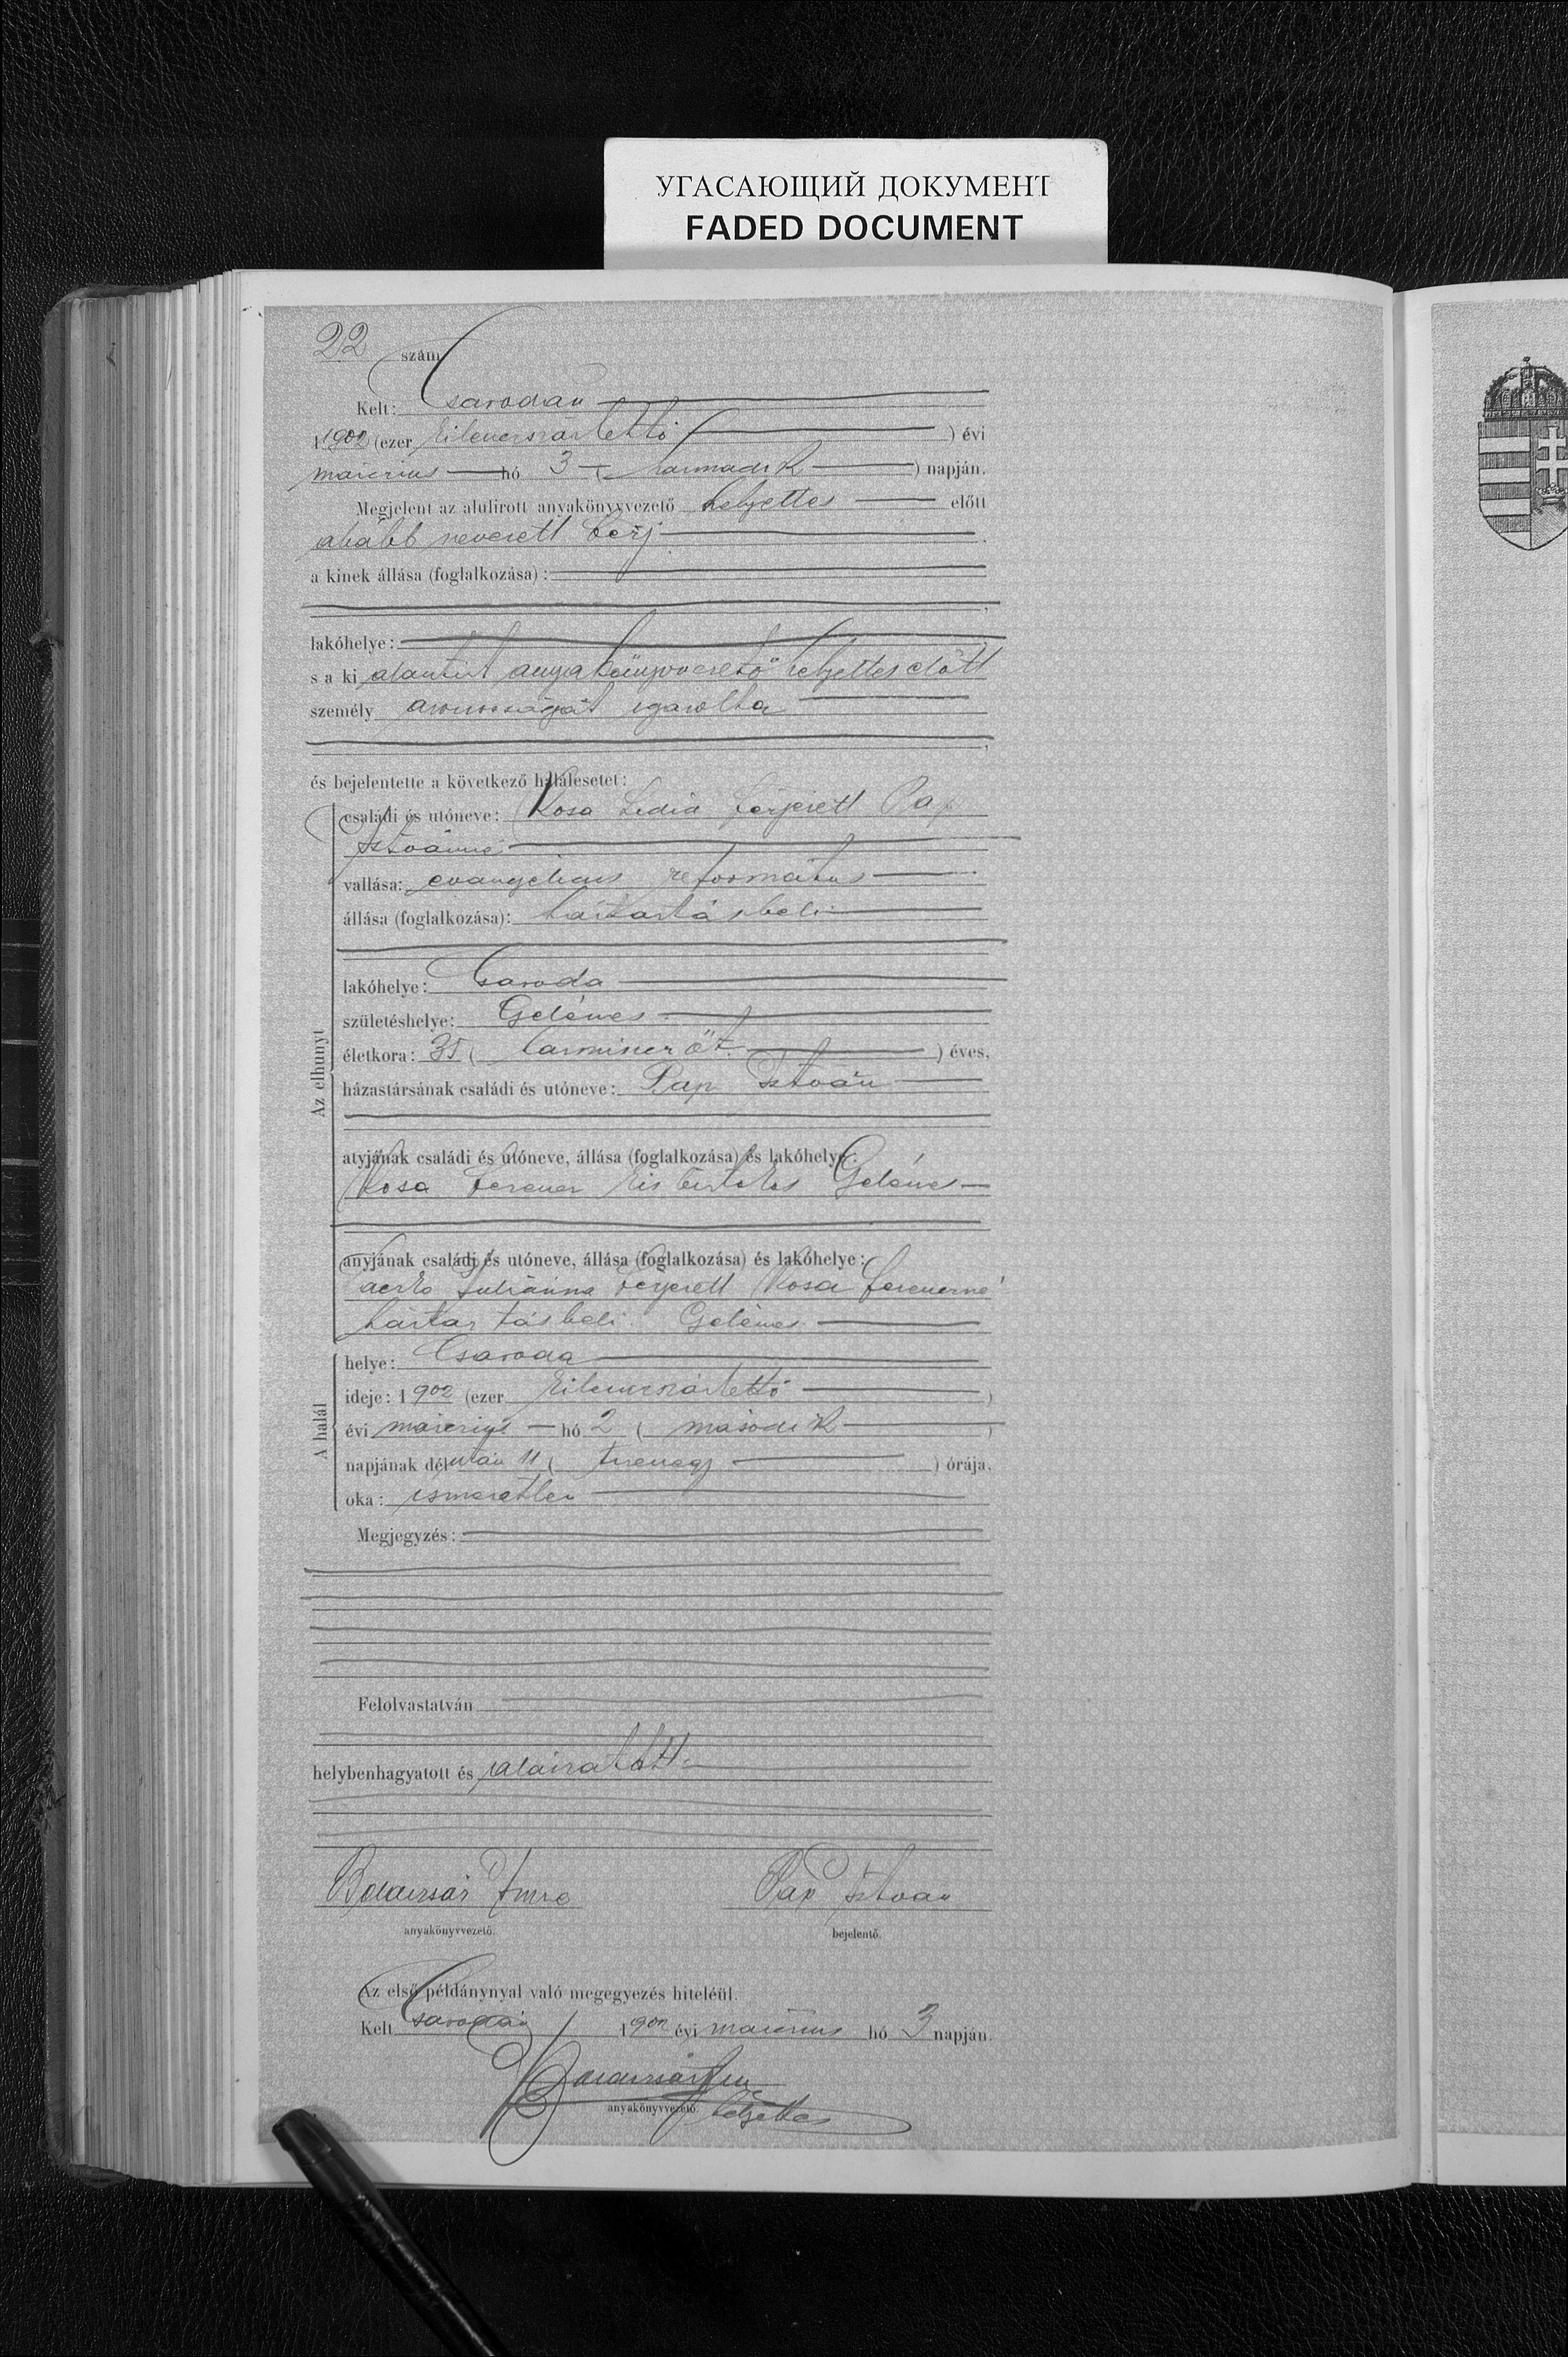 УГАСАЮЩИЙ ДОКУМЕНТ
FADED DOCUMENT
22 szám
Kelt: Csarodán
1902 (ezer kilencszázkettő) évi
márczius hó 3 (harmadik) napján.
Megjelent az alulirott anyakönyvvezető helyettes előtt
alább nevezett férj
a kinek állása (foglalkozása):
lakóhelye:
s a ki alantírt anyakönyvvezető helyettes előtt
személy azonosságát igazolta
és bejelentette a következő halálesetet:
Az elhunyt
családi és utóneve: Kosa Lidia férjezett Pap
Istvánné
vallása: evangelicus református
állása (foglalkozása): háztartásbeli
lakóhelye: Csaroda
születéshelye: Gelénes
életkora: 35 (harmincz öt) éves,
házastársának családi és utóneve: Pap István
atyjának családi és utóneve, állása (foglalkozása) és lakóhelye:
Kosa Ferencz kis birtokos Gelénes
anyjának családi és utóneve, állása (foglalkozása) és lakóhelye:
Juliánna férjezett Kosa Ferenczné
háztartásbeli Gelénes
A halál
helye: Csaroda
ideje: 1902 (ezer kilenczszázkettő)
évi márczius hó 2 (második)
napjának délután 11 (tizenegy) órája,
oka: ismeretlen
Megjegyzés:
Felolvastatván
helybenhagyatott és aláiratott
Imre
Pap István
anyakönyvvezető.
bejelentő.
Az első példánynyal való megegyezés hiteléül.
Kelt Csarodán 1902 évi márczius hó 3 napján.
anyakönyvvezető. helyettes